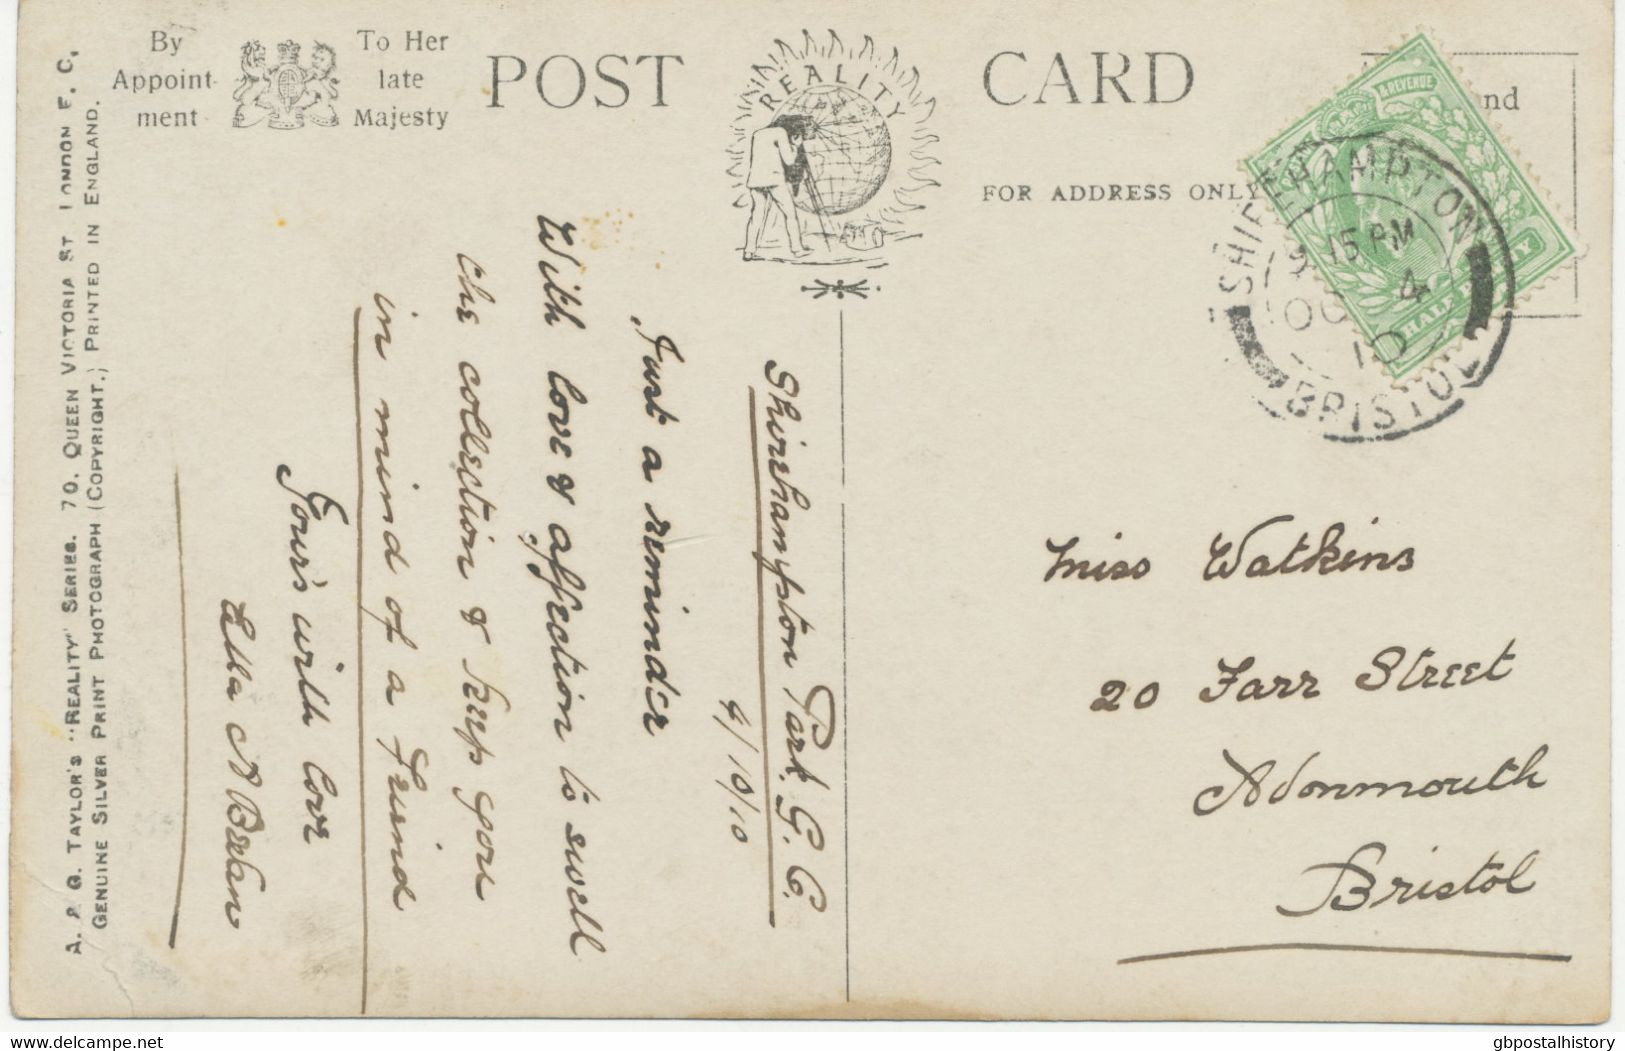 By
Appoint-
ment
To Her
late
Majesty
POST
CARD
REALITY
FOR ADDRESS ONLY
& REVENUE
HALF
nd
SHIREHAMPTON
15 PM
OC 4
10
BRISTOL
A. & G. TAYLOR'S "REALITY" SERIES. 70, QUEEN VICTORIA ST. LONDON E. C.
GENUINE SILVER PRINT PHOTOGRAPH (COPYRIGHT.) PRINTED IN ENGLAND.
Shirehampton Park. G. C.
4/10/10
Just a reminder
With love & affection to swell
the collection & keep you
in mind of a Friend
Your's with love
Ella N
Miss Watkins
20 Farr Street
Avonmouth
Bristol
gbpostalhistory
www.delcampe.net